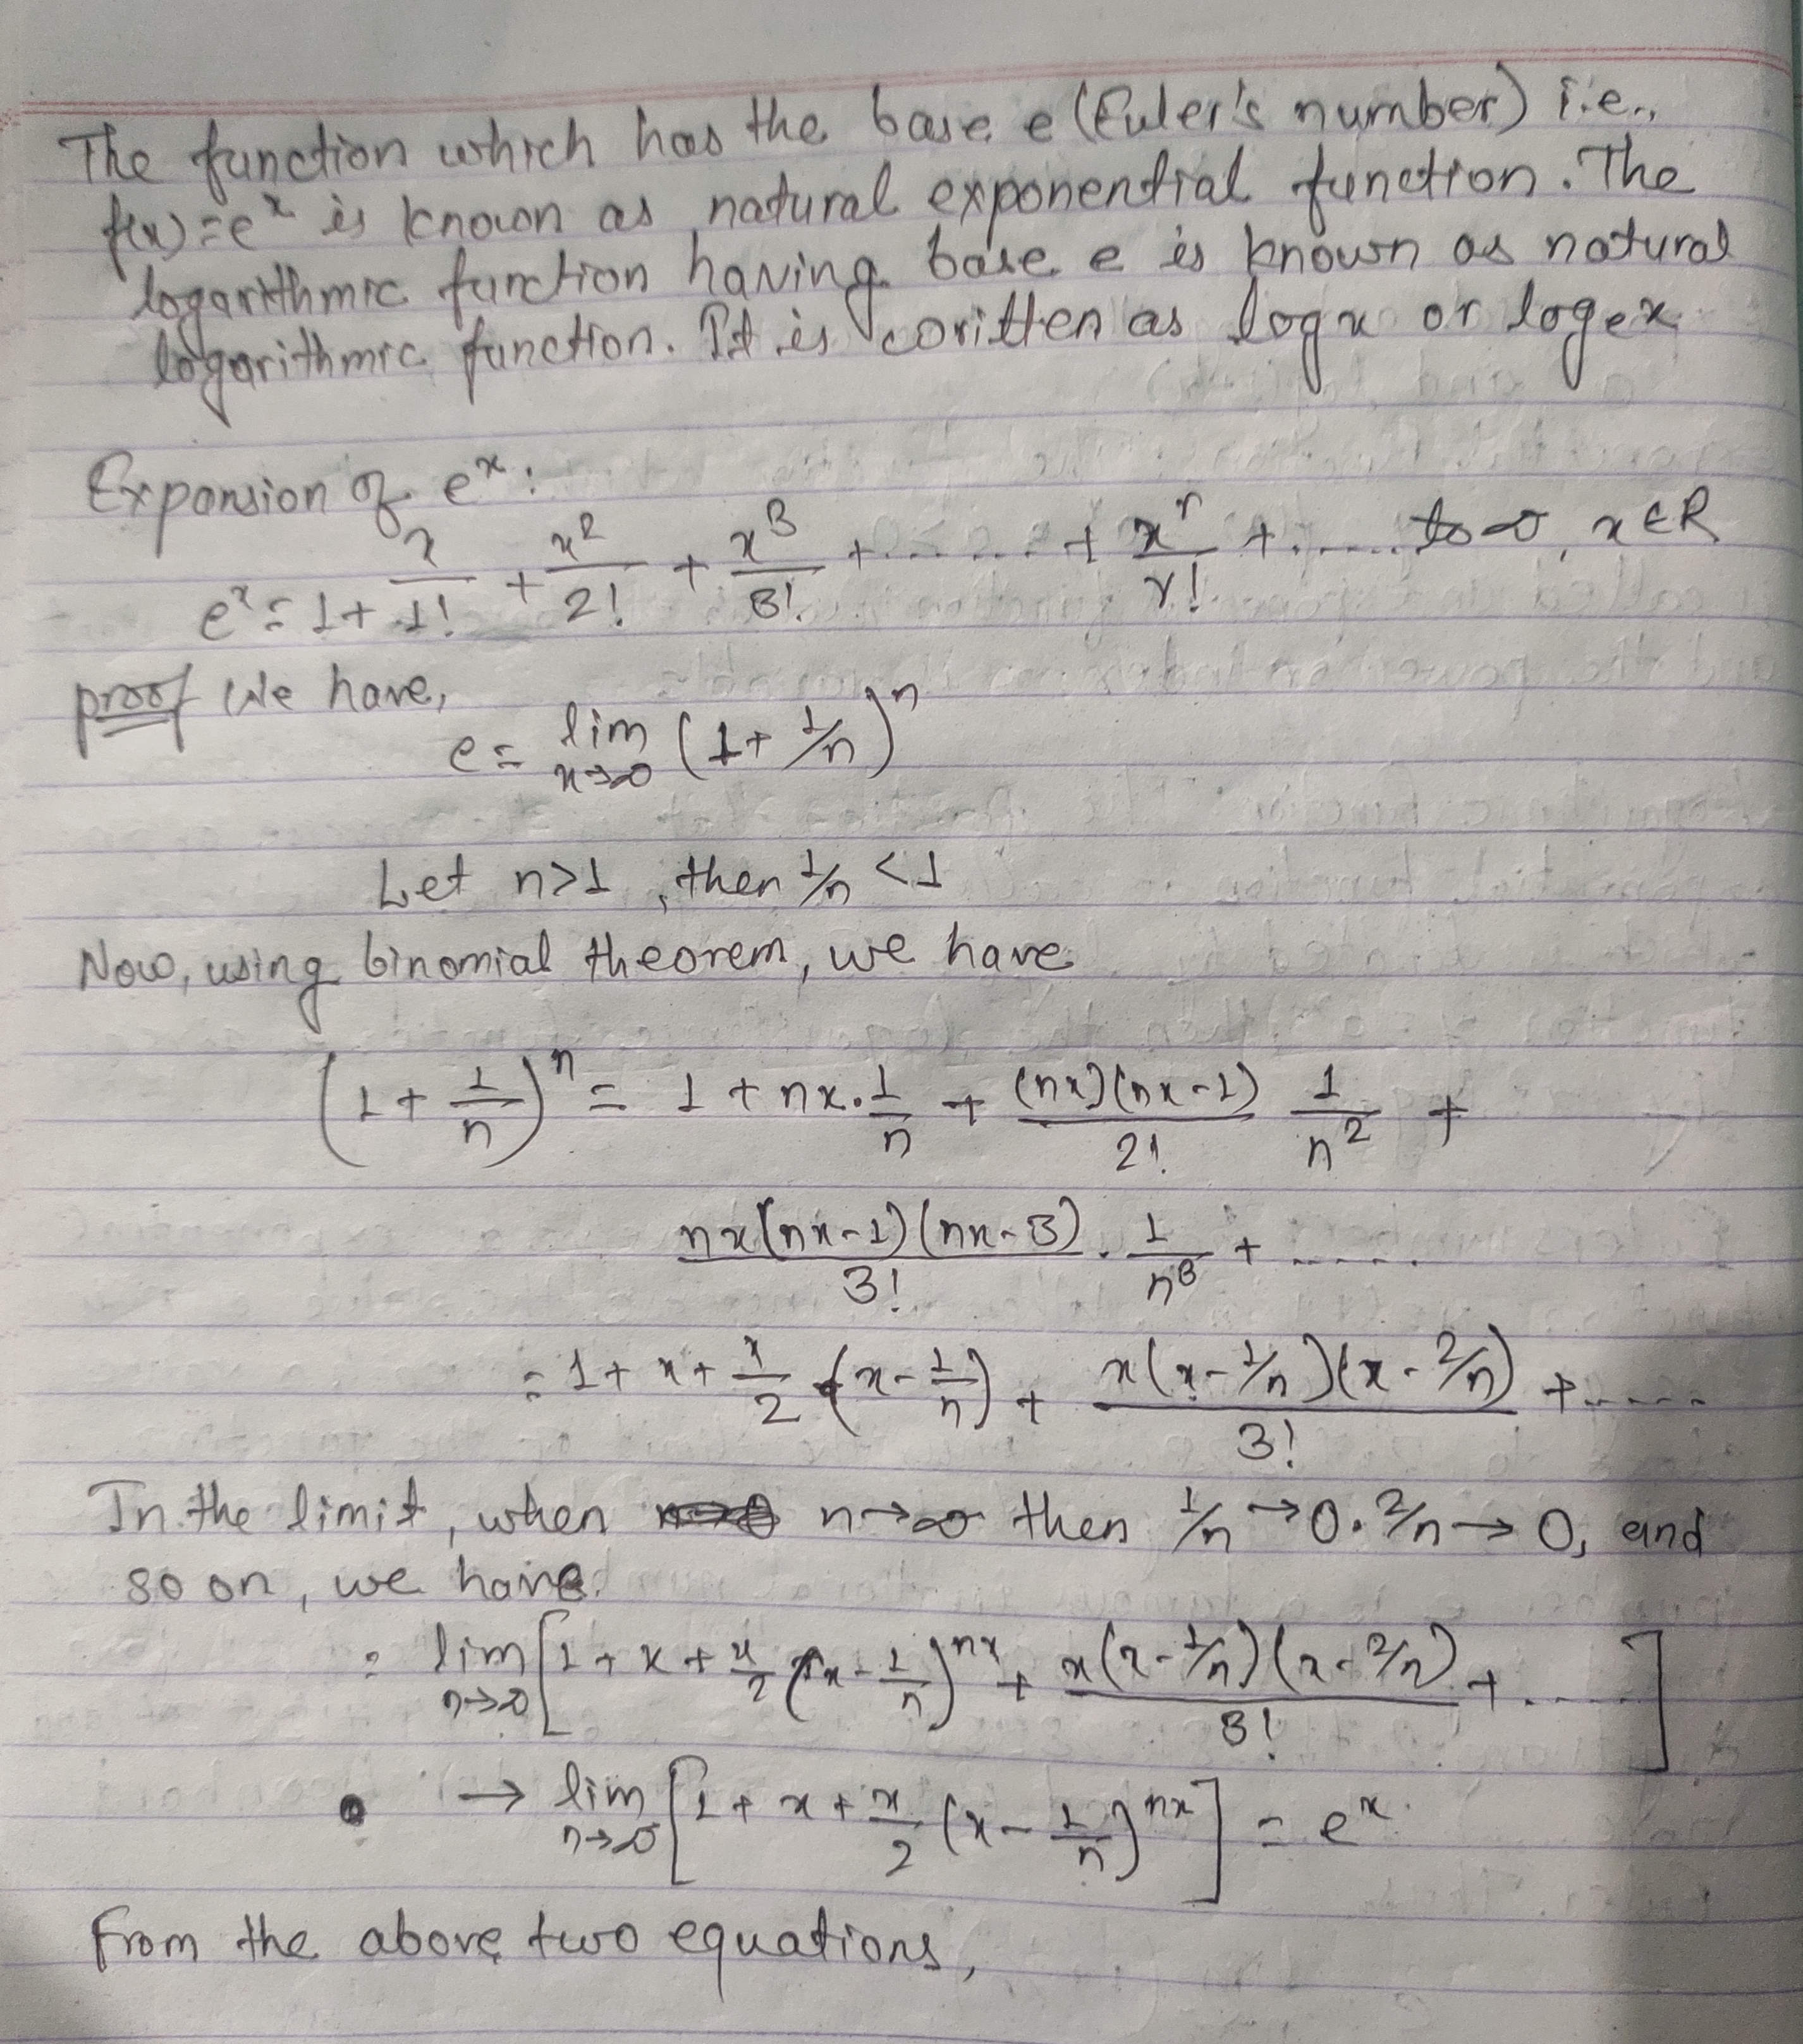 The function which has the base e (Euler's number) i.e.,
f(x)=e^x is known as natural exponential function. The
logarithmic function having base e is known as natural
logarithmic function. It is written as log x or logex
Expansion of e^x:
e^x = 1 + x/1! + x^2/2! + x^3/3! + ........ + x^r/r! + ...... to ∞, x ∈ R
proof We have,
e = lim x→∞ (1 + 1/n)^n
Let n>1, then 1/n <1
Now, using binomial theorem, we have
(1 + 1/n)^n = 1 + nx.1/n + (nx)(nx-1)/2! 1/n^2 +
nx(nx-1)(nx-3)/3! . 1/n^3 + ......
= 1 + x + x/2 (x - 1/n) + x(x - 1/n)(x - 2/n)/3! + .....
In the limit, when n→∞ then 1/n →0. 2/n → 0, and
so on, we have
= lim n→∞ [1 + x + x/2 (x - 1/n)^nx + x(x - 1/n)(x - 2/n)/3! + .....]
→ lim n→∞ [1 + x + x/2 (x - 1/n)^nx] = e^x.
From the above two equations,